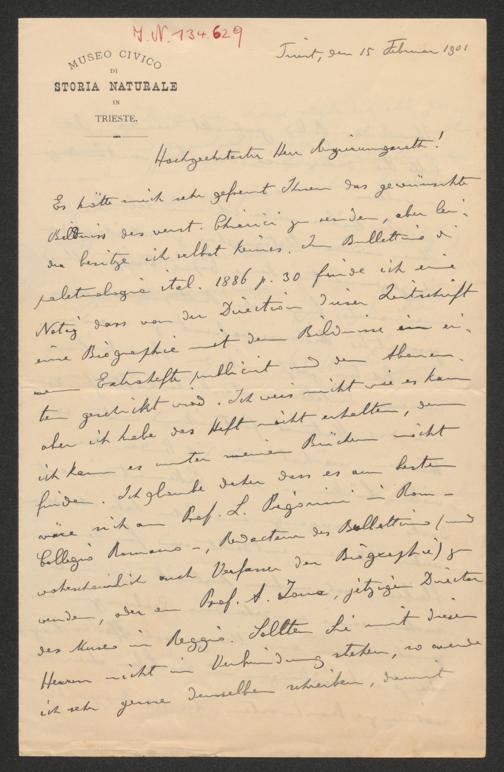 J. N. 134.629
MUSEO CIVICO
DI
STORIA NATURALE
IN
TRIESTE.
Triest, den 15 Februar 1901
Hochgeehrtester Herr Regierungsrath!
Es hätte mich sehr gefreut Ihnen das gewünschte
Bildniss des verst. Chierici zu senden, aber lei-
der besitze ich selbst keines. Im Bullettino di
paletnologia ital. 1886 p. 30 finde ich eine
Notiz dass von der Direction dieser Zeitschrift
eine Biographie mit dem Bildnisse in ei-
nem Extrahefte publicirt und den Abonnen-
ten geschickt wird. Ich weis nicht wie es kam
aber ich habe das Heft nicht erhalten, denn
ich kann es unter meinen Büchern nicht
finden. Ich glaube daher dass es am besten
wäre sich an Prof. L. Pigorini in Rom –
Collegio Romano –, Redacteur des Bullettino (und
wahrscheinlich auch Verfasser der Biographie) zu
wenden, oder an Prof. A. , jetzigen Director
des Museo in Reggio. Sollten Sie mit diesen
Herren nicht in Verbindung stehen, so werde
ich sehr gerne denselben schreiben, damit